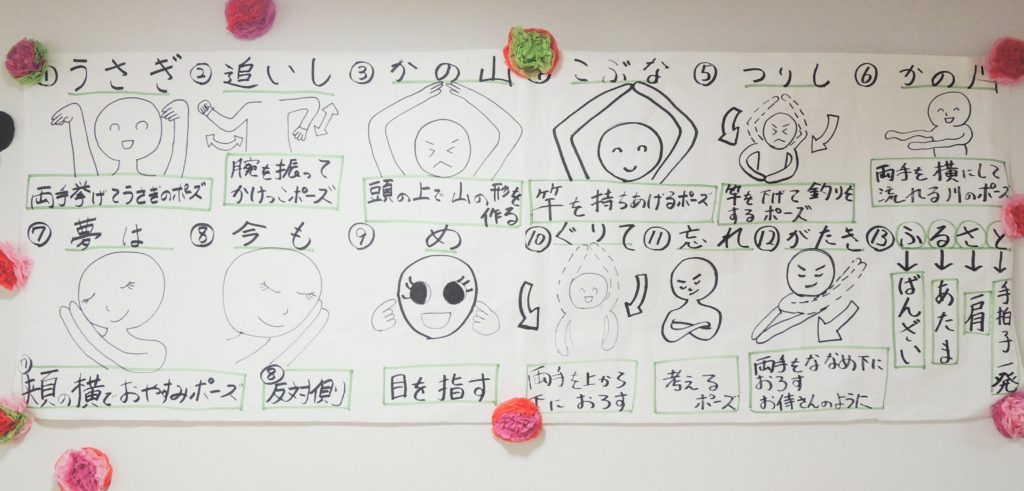 ① うさぎ ② 追いし ③ かの山 こぶな ⑤ つりし ⑥ かの川
両手挙げてうさぎのポズ
腕を振って
かけっこポーズ
頭の上で山の形を
作る
竿を持ちあげるポーズ
竿を下げて釣りを
するポーズ
両手を横にして
流れる川のポーズ
⑦ 夢は ⑧ 今も ⑨ め ⑩ ぐりて ⑪ 忘れ ⑫ がたき ⑬ ふるさと
ばんざい
あたま
肩
手拍子一発
⑦
頬の横でおやすみポーズ
⑧
反対側
目を指す
両手を上から
下におろす
考える
ポーズ
両手をななめ下に
おろす
お侍さんのように